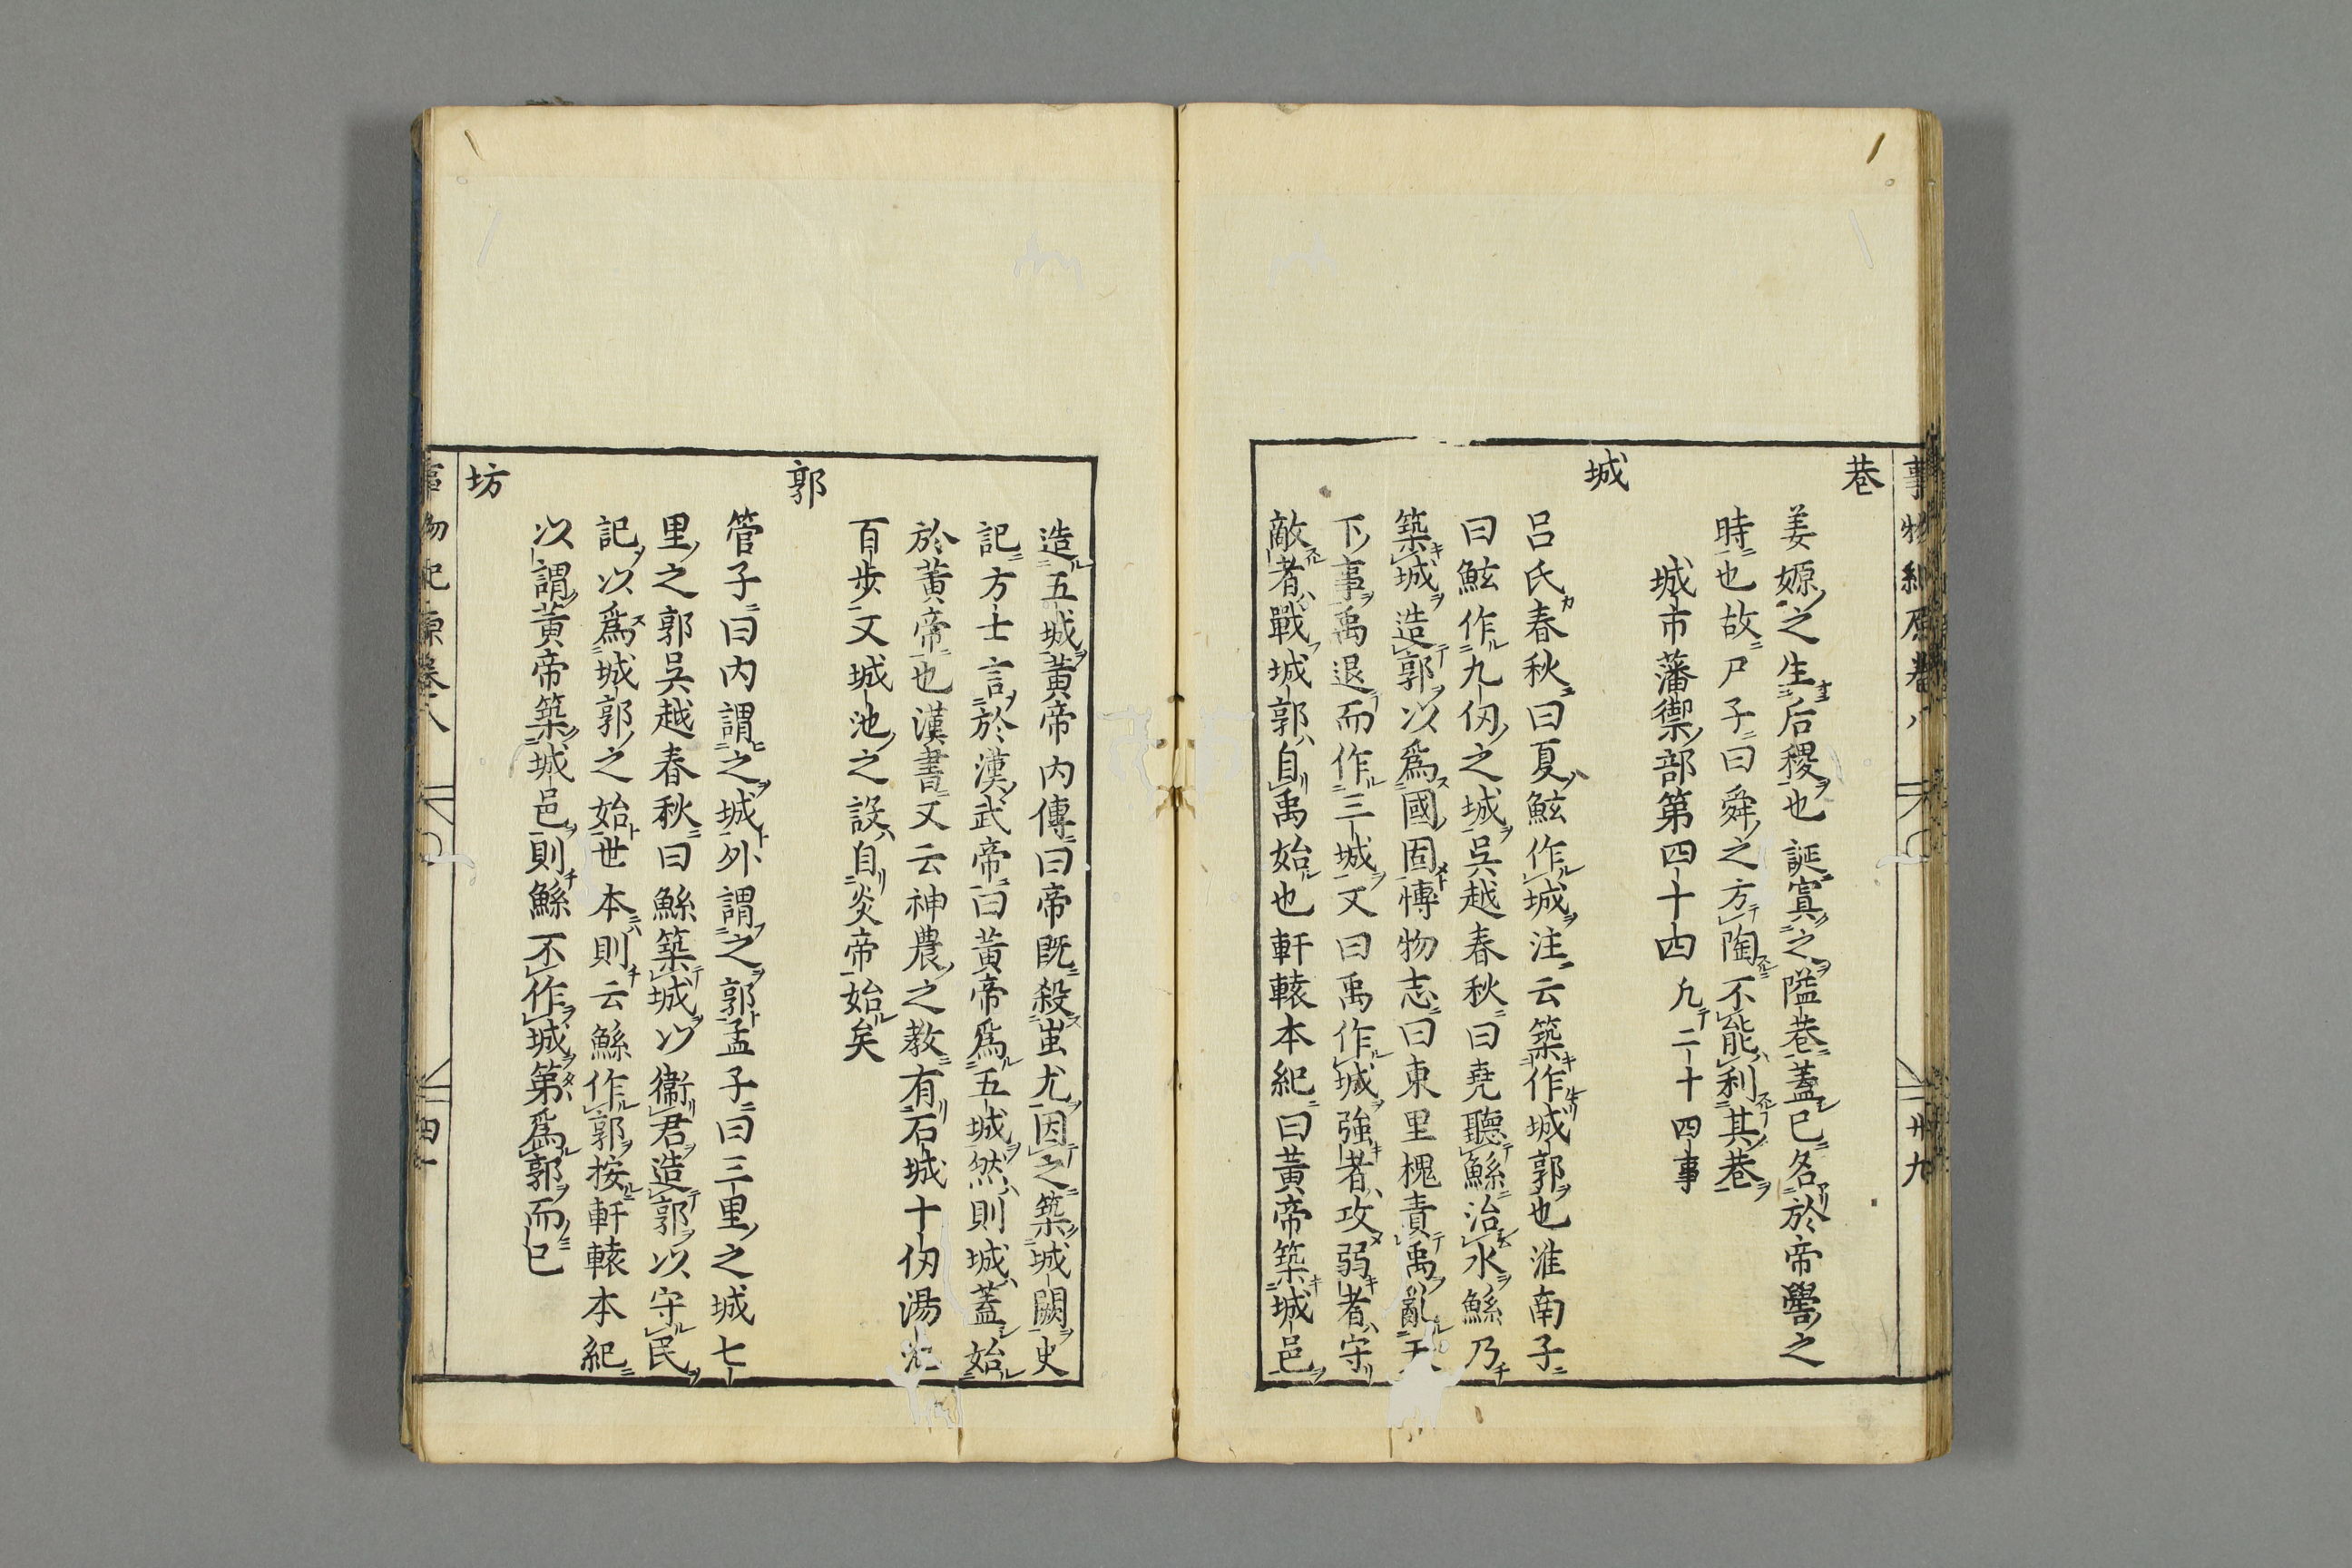 事物紀原卷八
卅九
巷
姜嫄之生后稷也誕寘之隘巷蓋巳名於帝嚳之
時也故尸子曰舜之方陶不能利其巷
城市藩禦部第四十四凡二十四事
城
呂氏春秋曰夏鮌作城注云築作城郭也淮南子
曰鮌作九仞之城吳越春秋曰堯聽鯀治水鯀乃
築城造郭以爲國固愽物志曰東里槐責禹亂天
下事禹退而作三城又曰禹作城強者攻弱者守
敵者戰城郭自禹始也軒轅本紀曰黃帝築城邑
造五城黃帝內傳曰帝既殺蚩尤因之築城闕史
記方士言於漢武帝曰黃帝爲五城然則城蓋始
於黃帝也漢書又云神農之教有石城十仞湯池
百歩又城池之設自炎帝始矣
郭
管子曰内謂之城外謂之郭孟子曰三里之城七
里之郭吳越春秋曰鯀築城以衞君造郭以守民
記以爲城郭之始世本則云鯀作郭按軒轅本紀
以謂黃帝築城邑則鯀不作城第爲郭而巳
坊
事物紀原卷八
四一